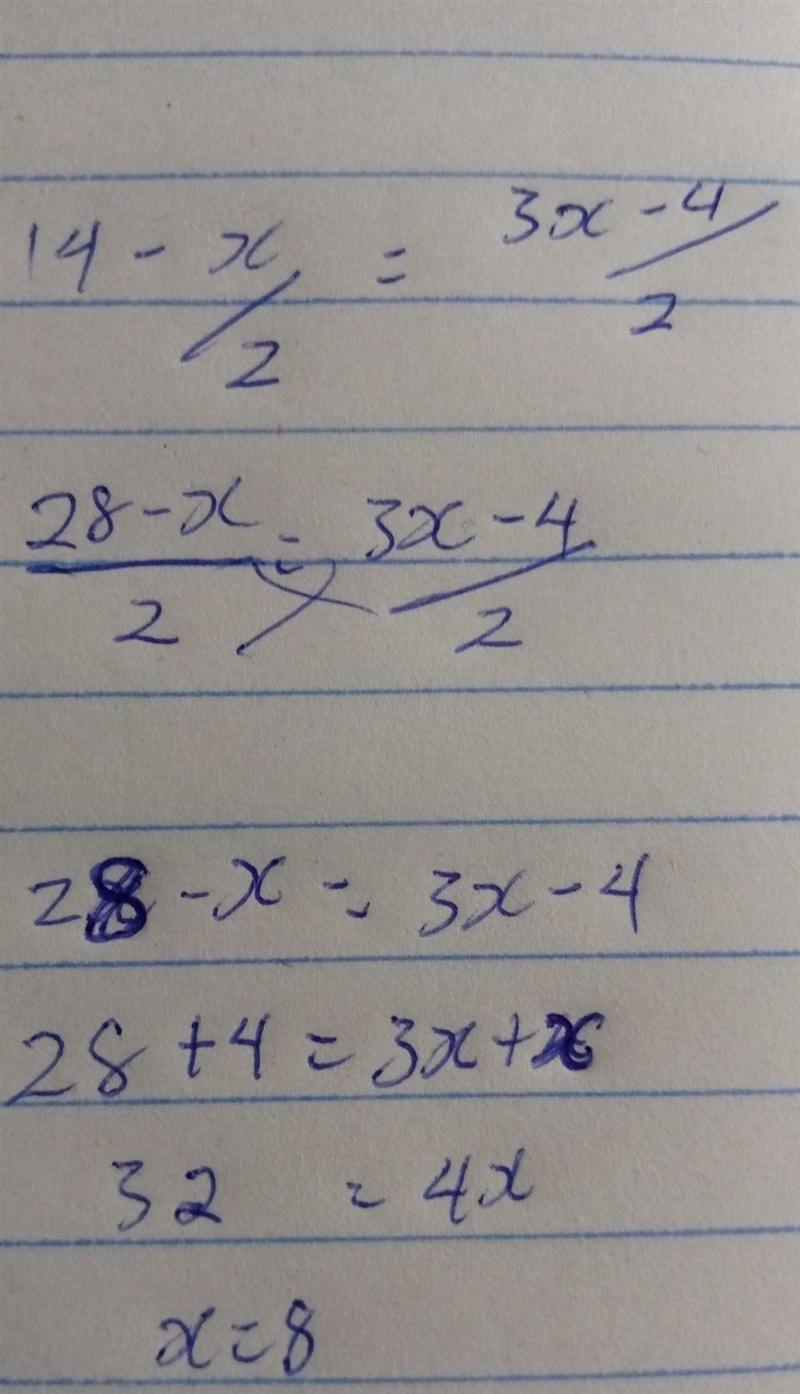 14 - x/2 = 3x-4/2
28-x/2 = 3x-4/2
28 - x = 3x - 4
28 + 4 = 3x + x
32 = 4x
x = 8